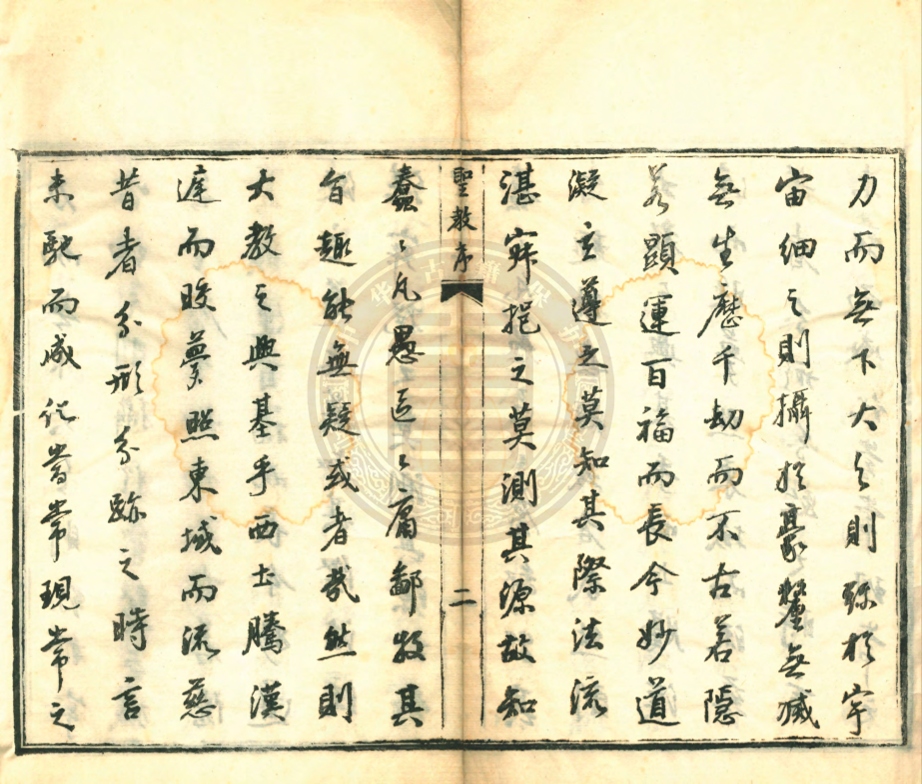 力而無下大之則彌於宇
宙細之則攝於豪釐無滅
無生歷千劫而不古若隱
若顯運百福而長今妙道
凝玄遵之莫知其際法流
湛寂挹之莫測其源故知
聖教序
二
蠢〻凡愚區〻庸鄙投其
旨趣能無疑或者哉然則
大教之興基乎西土騰漢
庭而皎夢照東域而流慈
昔者分形分跡之時言
未馳而成化當常現常之